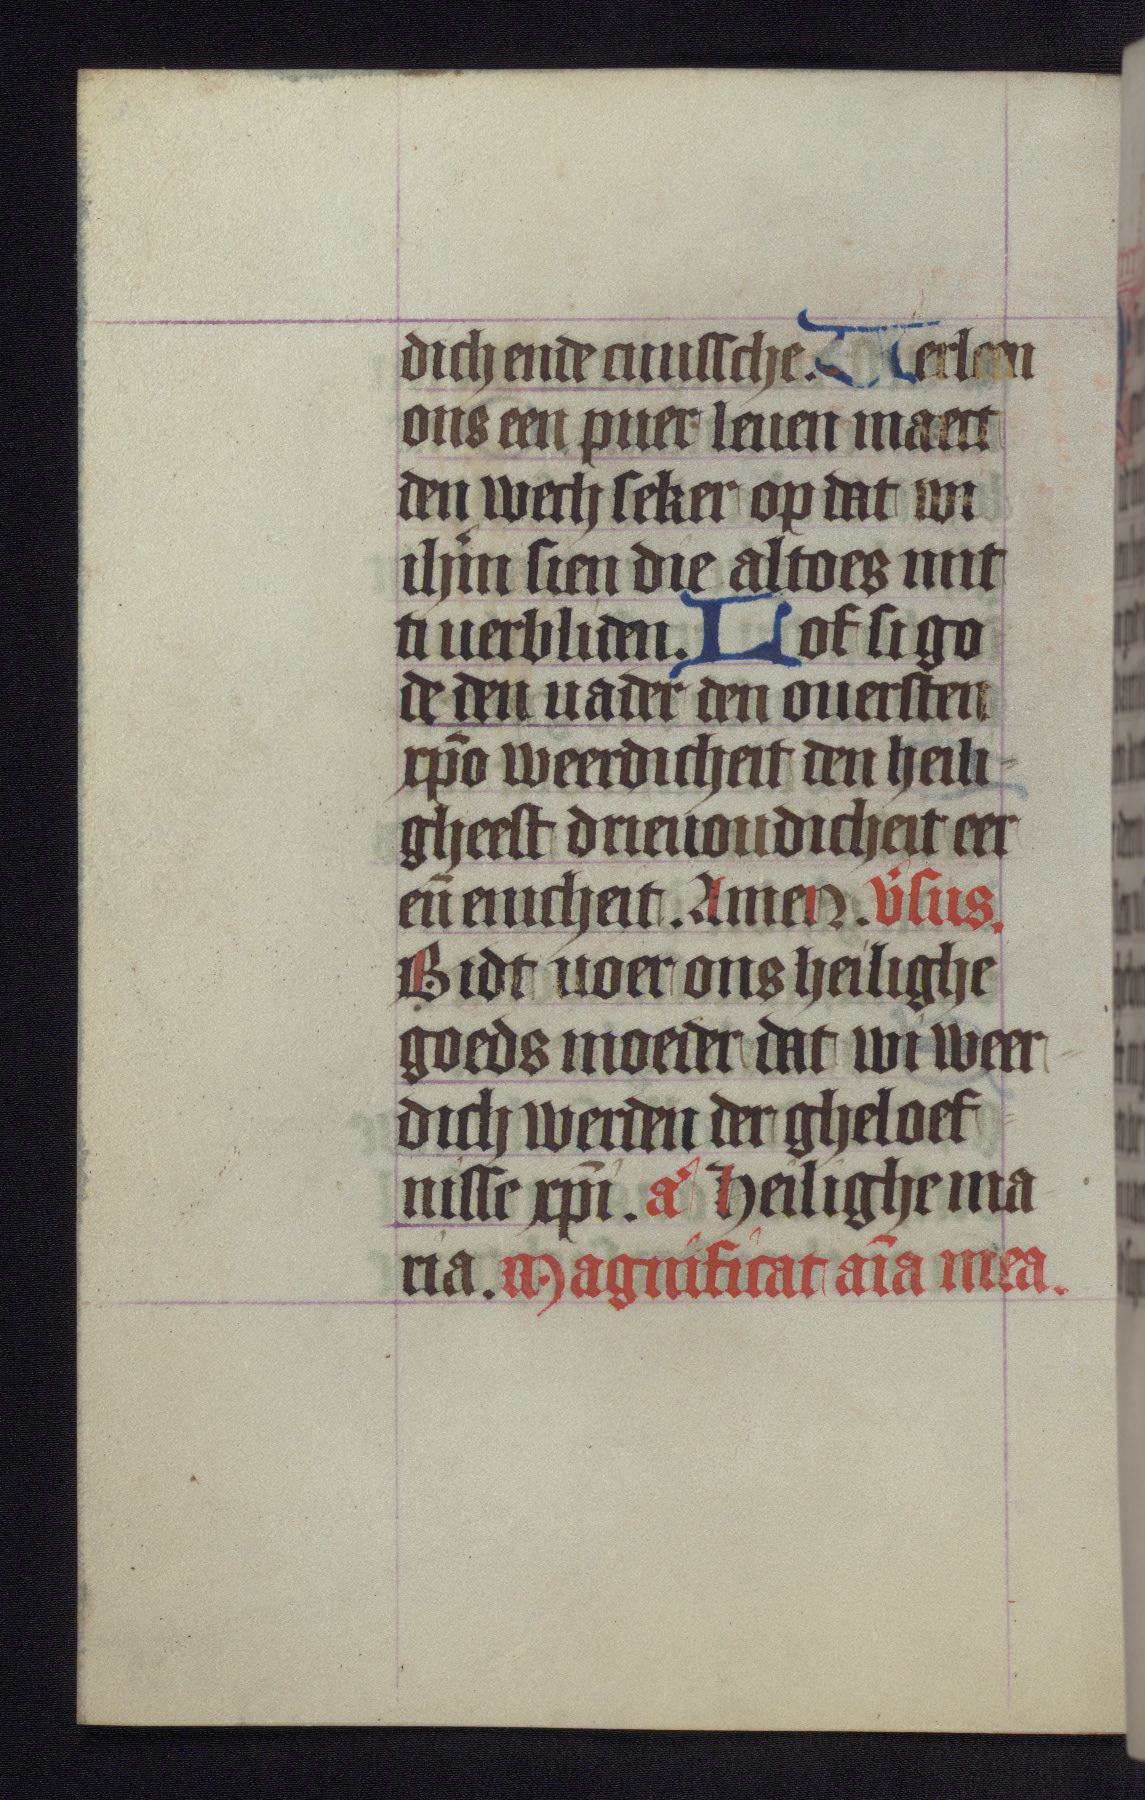 dich ende cuussche. Uerleen
ons een puer leuen maect
den wech seker op dat wi
ihm̄ sien die altoes mit
ti uerbliden. Lof si go
de den uader den ouersten
xp̄o weerdicheit den heili
gheest drieuoudicheit eer
en̄ enicheit. Amen. v̾sus.
Bidt uoer ons heilighe
goeds moeder dat wi weer
dich werden der gheloef
nisse xp̄i. a᷎ Heilighe ma
ria. Magnificat aīa mea.